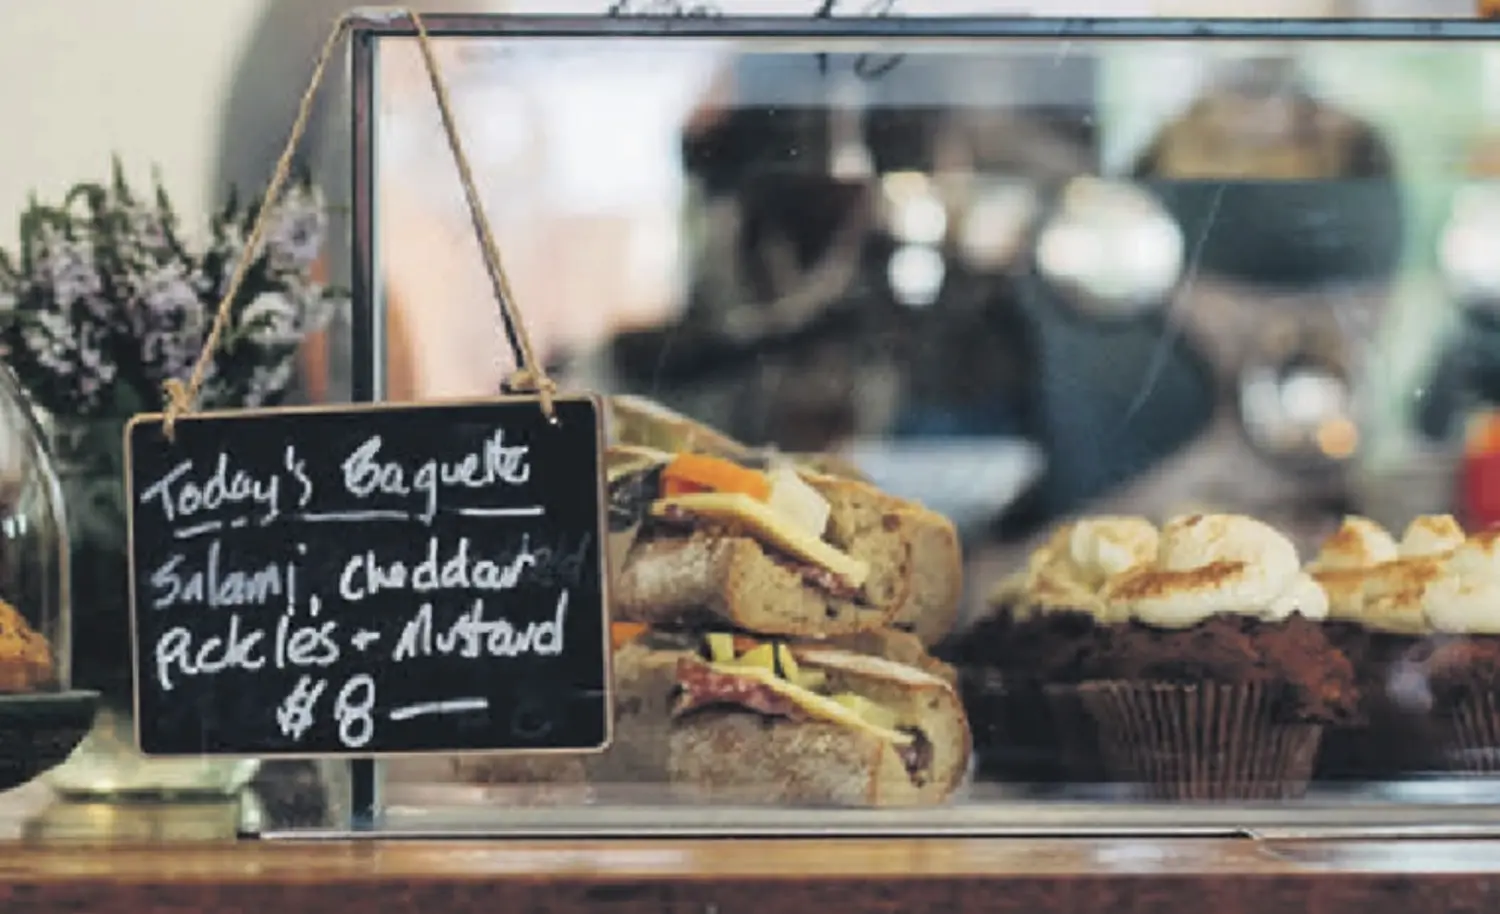 Today's Baguette
Salami, Cheddar
Pickles + Mustard
$8—